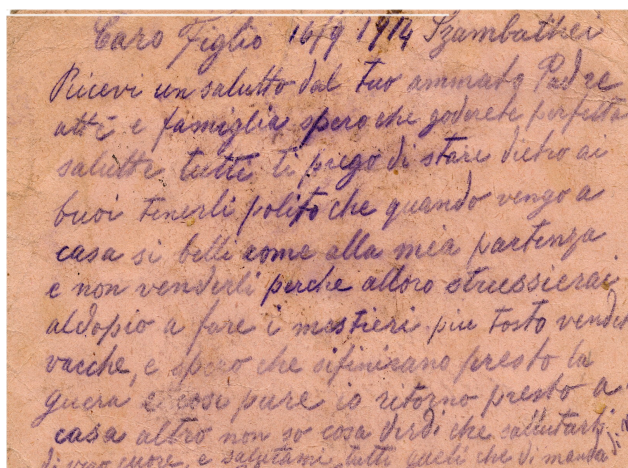 Caro Figlio 16/9 1914 Szambathei
Ricevi un salutto dal tuo ammato Padre
atte e famiglia, spero che goderete perfetta
salutte tutti ti prego di stare dietro ai
buoi tenerli polito che quando vengo a
casa si belli come alla mia partenza
e non venderli perche alloro strussierai
aldopio a fare i mestieri piu tosto vendi
vacche, e spero che sifinirano presto la
guera e cosi pure io ritorno presto a
casa altro non so cosa dirdi che salutarti
di vero cuore e salutami tutti queli che di manda